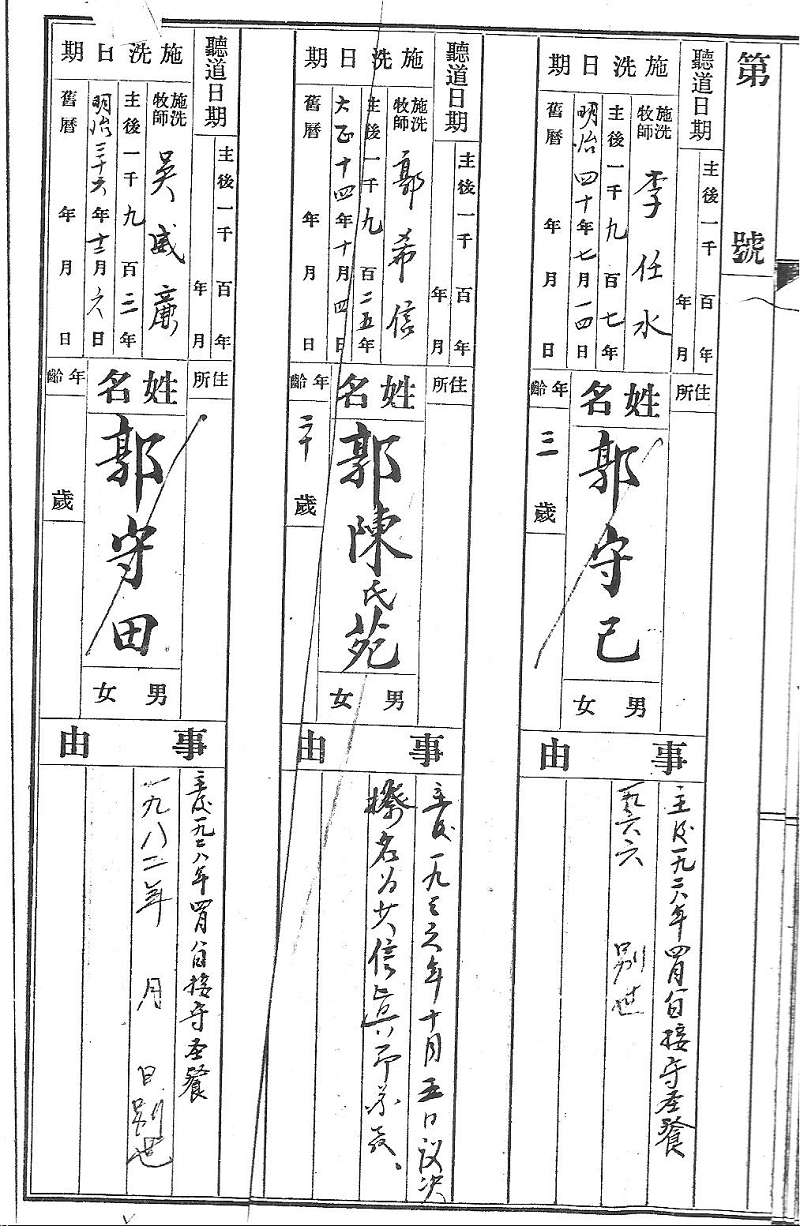 第 號
聽道日期
主後一千 百 年
年 月
施洗日期
施洗牧師 李任水
主後一千九百七年
明治四十年七月一四日
舊曆 年 月 日
住所
姓名
郭守己
年齡
三歲
男 女
事由
主后一九二八年四月一日接守圣餐
一九六六 別世
聽道日期
主後一千 百 年
年 月
施洗日期
施洗牧師 郭希信
主後一千九百二五年
大正十四年十月四日
舊曆 年 月 日
住所
姓名
郭陳氏苑
年齡
二十歲
男 女
事由
主后一九三六年十月五日议决
除名为失信
聽道日期
主後一千 百 年
年 月
施洗日期
施洗牧師 吳威廉
主後一千九百三年
明治三十六年十二月六日
舊曆 年 月 日
住所
姓名
郭守田
年齡
歲
男 女
事由
主后一九二八年四月一日接守圣餐
一九八二年 月 日別世